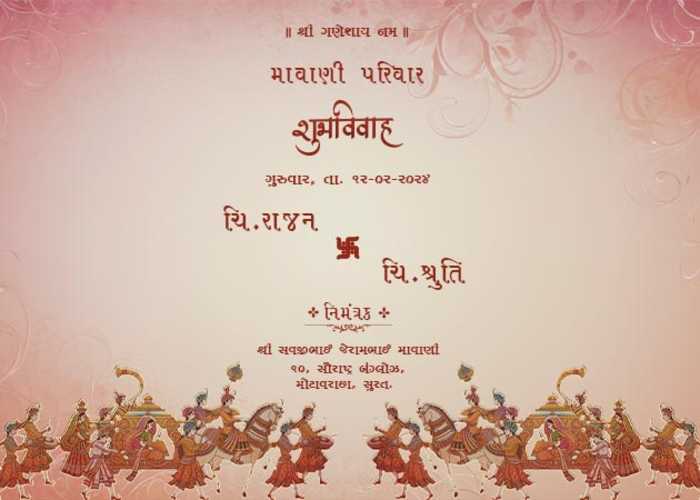 ॥ શ્રી ગણેશાય નમ ॥
માવાણી પરિવાર
શુભવિવાહ
ગુરુવાર, તા. ૧૨-૦૨-૨૦૨૪
ચિ.રાજન
ચિ.શ્રુતિ
નિમંત્રક
શ્રી સવજીભાઈ જેરામભાઈ માવાણી
૧૦, સૌરાષ્ટ્ર બંગ્લોઝ,
મોટાવરાછા, સુરત.